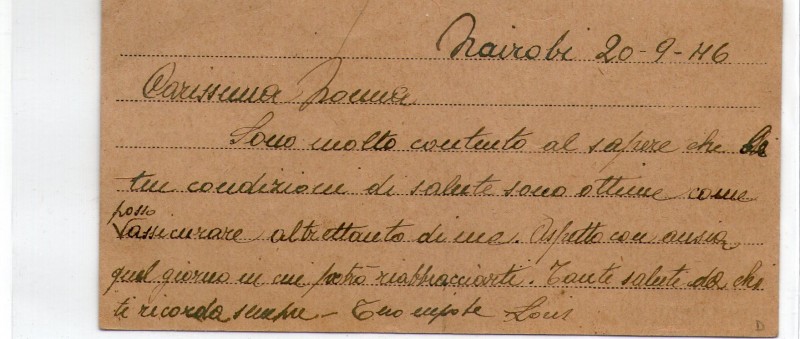 Nairobi 20-9-46
Carissima Nonna
Sono molto contento al sapere che le
tue condizioni di salute sono ottime come
posso
assicurare altrettanto di me. Aspetto con ansia
quel giorno in cui potrò riabbracciarti. Tante salute da chi
ti ricorda sempre - Tuo nipote
D